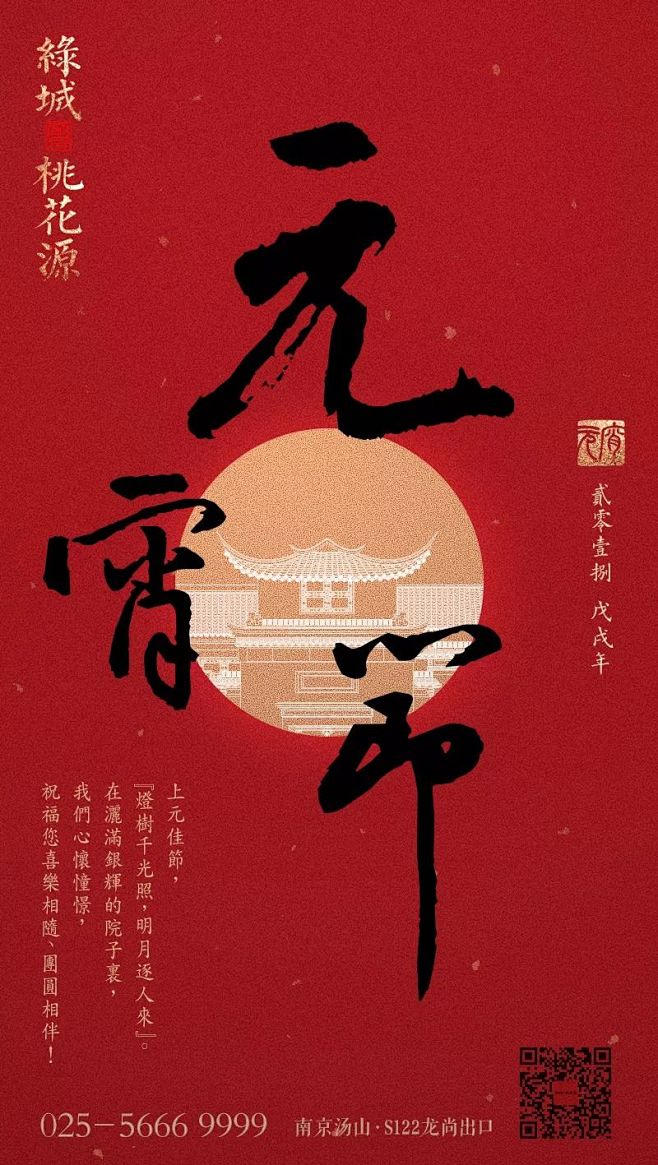 綠城
桃花源
元宵節
元宵
貳零壹捌 戊戌年
上元佳節，
『燈樹千光照，明月逐人來』。
在灑滿銀輝的院子裏，
我們心懷憧憬，
祝福您喜樂相隨、團圓相伴！
025-5666 9999
南京汤山·S122龙尚出口